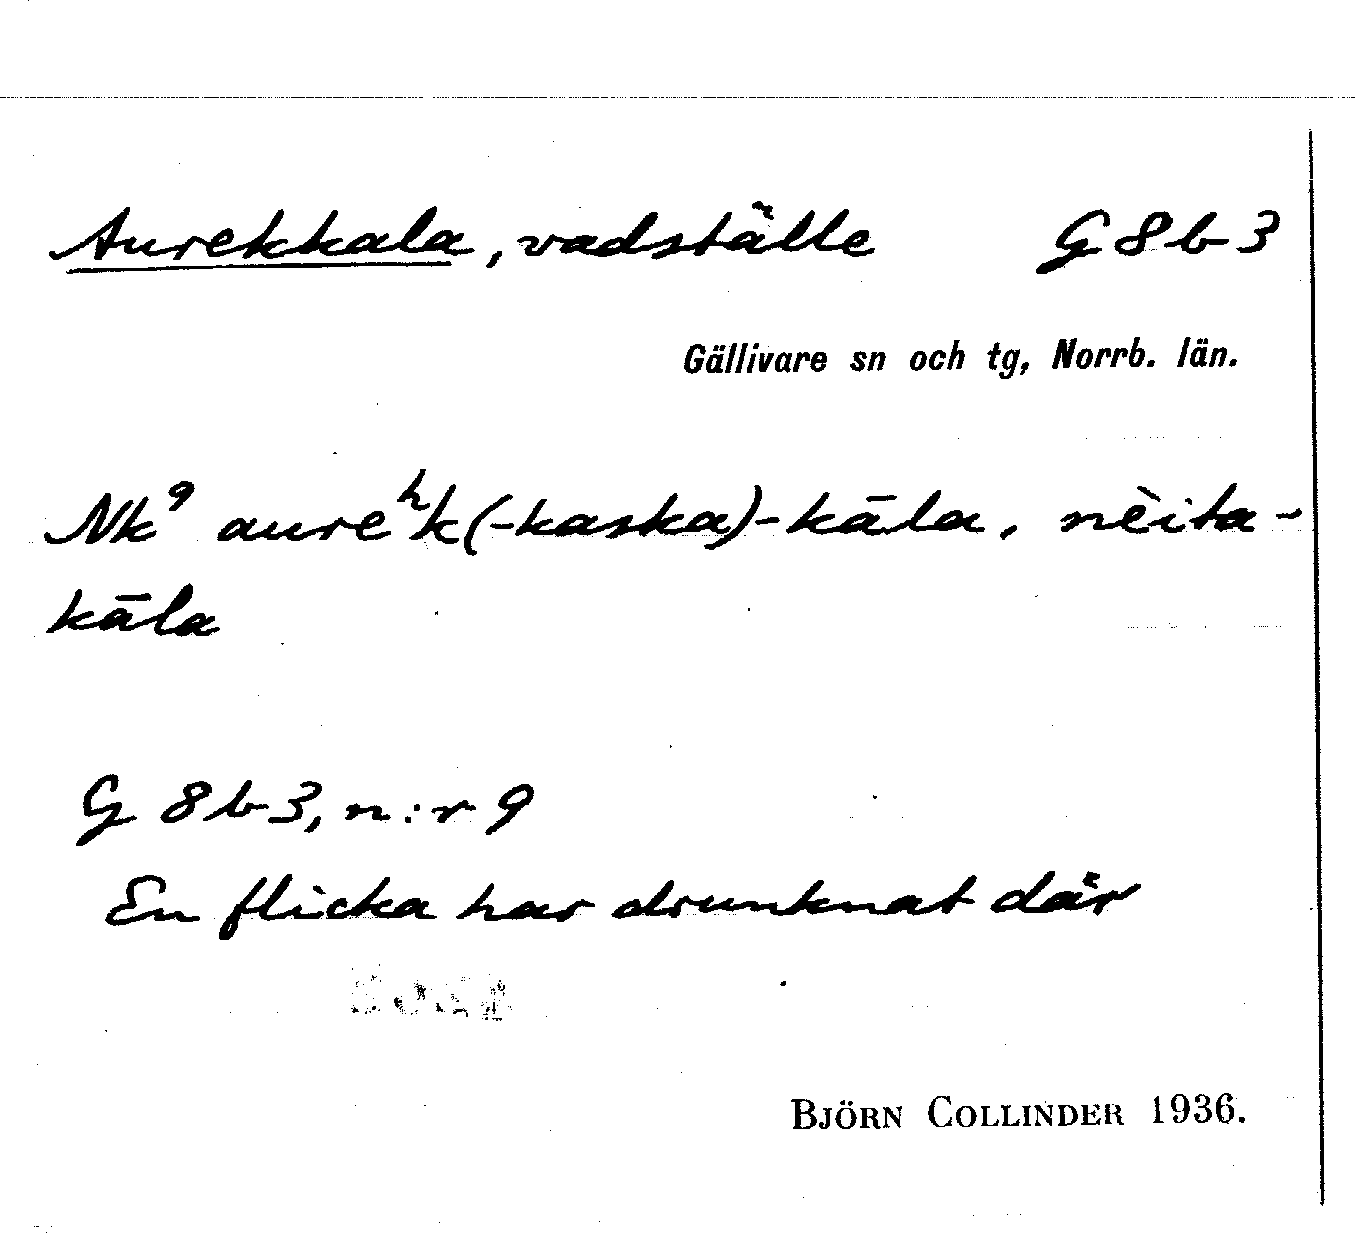 Aurekkala, vadställe G 8 b 3
Gällivare sn och tg, Norrb. län.
Nk⁹ aureʰk(-kaska)-kāla, nèita-
kāla
G 8 b 3, n:r 9
En flicka har drunknat där
BJÖRN COLLINDER 1936.